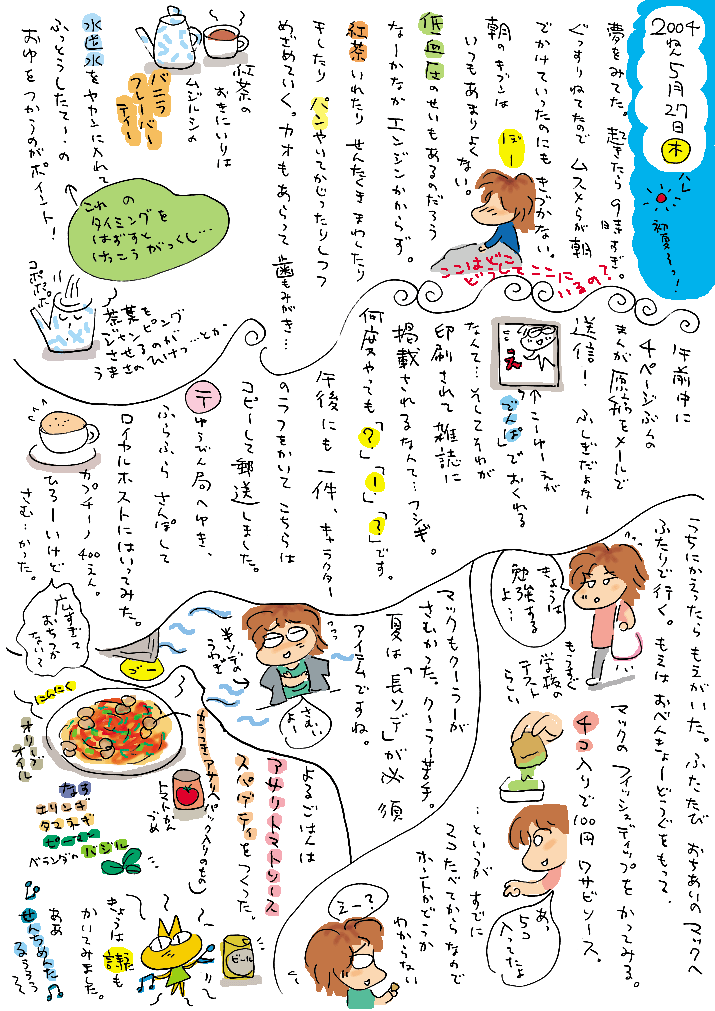 2004
ねん5月27日
木
ハレ
初夏ろっ!
夢をみてた。起きたら9時すぎ。
ぐっすりねてたので ムスメらが朝
でかけていったのにもきづかない。
朝のキブンは ぼー
いつもあまりよくない。
ここはどこ
どうしてここに
いるの?
低血圧のせいもあるのだろう
なーかなか エンジンかからず。
紅茶いれたり せんたくきまわしたり
干したり パンやいてかじったりしつつ
めざめていく。カオもあらって 歯もみがき…
紅茶の
おきにいりは
ムジルシの
バニラ
フレーバー
ティー
水道水をヤカンに入れて
ふっとうしたてー!の
おゆをつかうのがポイント!
これ の
タイミングを
はずすと
けっこう がっくし…
コポポポ
茶葉を
ジャンピング
させるのが
うまさのひけつ…とか
午前中に
4ページぶんの
まんが原稿をメールで
送信! ふしぎだよなー
←こーゆーえが
「でんぱ」でおくれる
なんて…そしてそれが
印刷されて雑誌に
掲載されるなんて…フシギ。
何度やっても「?」「!」「?」です。
午後にも一件、キャラクター
のラフをかいて こちらは
コピーして郵送しました。
〒
ゆうびん局へゆき、
ふらふら さんぽして
ロイヤルホストにはいってみた。
カプチーノ 400えん。
ひろーいけど
さむーかった。
広すぎて
おちつか
ない?
うちにかえったらもえがいた。ふたたび おちあいのマックへ
ふたりで行く。もえはおべんきょーどうぐをもって。
きょうは
勉強する
よ…
もうすぐ
学校の
テスト
らしい
マックの フィッシュディップを かってみる。
4コ入りで100円 ワサビソース。
あっ
5コ
入ってたよ
…というがすでに
2コたべてからなので
ホントかどうか
わからない
えー?
マックもクーラーが
さむかった。クーラー苦手。
夏は「長ソデ」が必須
アイテムですね。
半ソデの
うわぎ
さむい
よー
ゴー
よるごはんは
アサリトマトソース
スパゲティをつくった。
カラつきアサリ(パック入りのもの)
トマトかんづめ
にんにく
オリーブ
オイル
なす
エリンギ
タマネギ
ピーマン
ベランダのバジル
ビール
きょうは 詩も
かいてみました。
ああ
せんちめんた
るぅぅぅ